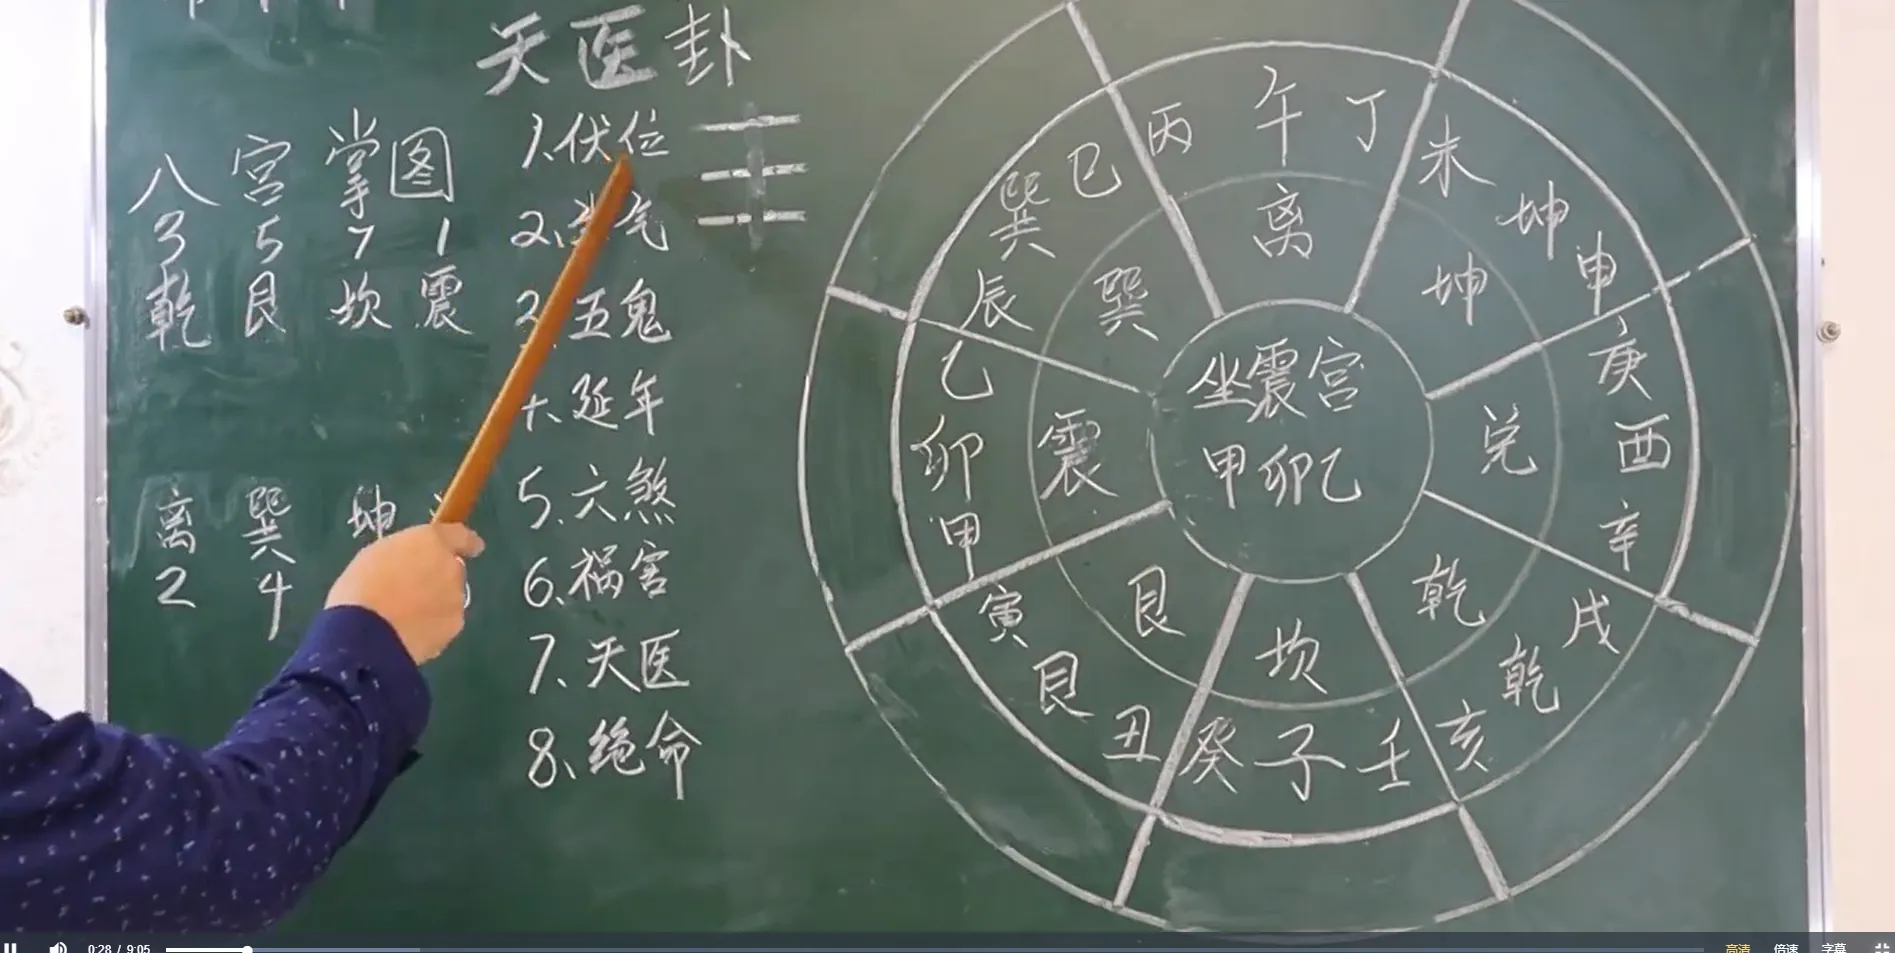 天医卦
八宫掌图
3 5 7 1
乾 艮 坎 震
离 巽 坤
2 4
1、伏位
2、气
五鬼
延年
5、六煞
6、祸害
7、天医
8、绝命
丙 午 丁
未 坤 申
庚 酉 辛
戌 乾 亥
壬 子 癸
丑 艮 寅
甲 卯 乙
辰 巽 巳
离
坤
兑
乾
坎
艮
震
巽
坐震宫
甲卯乙
0:28 / 9:05
高清 倍速 字幕